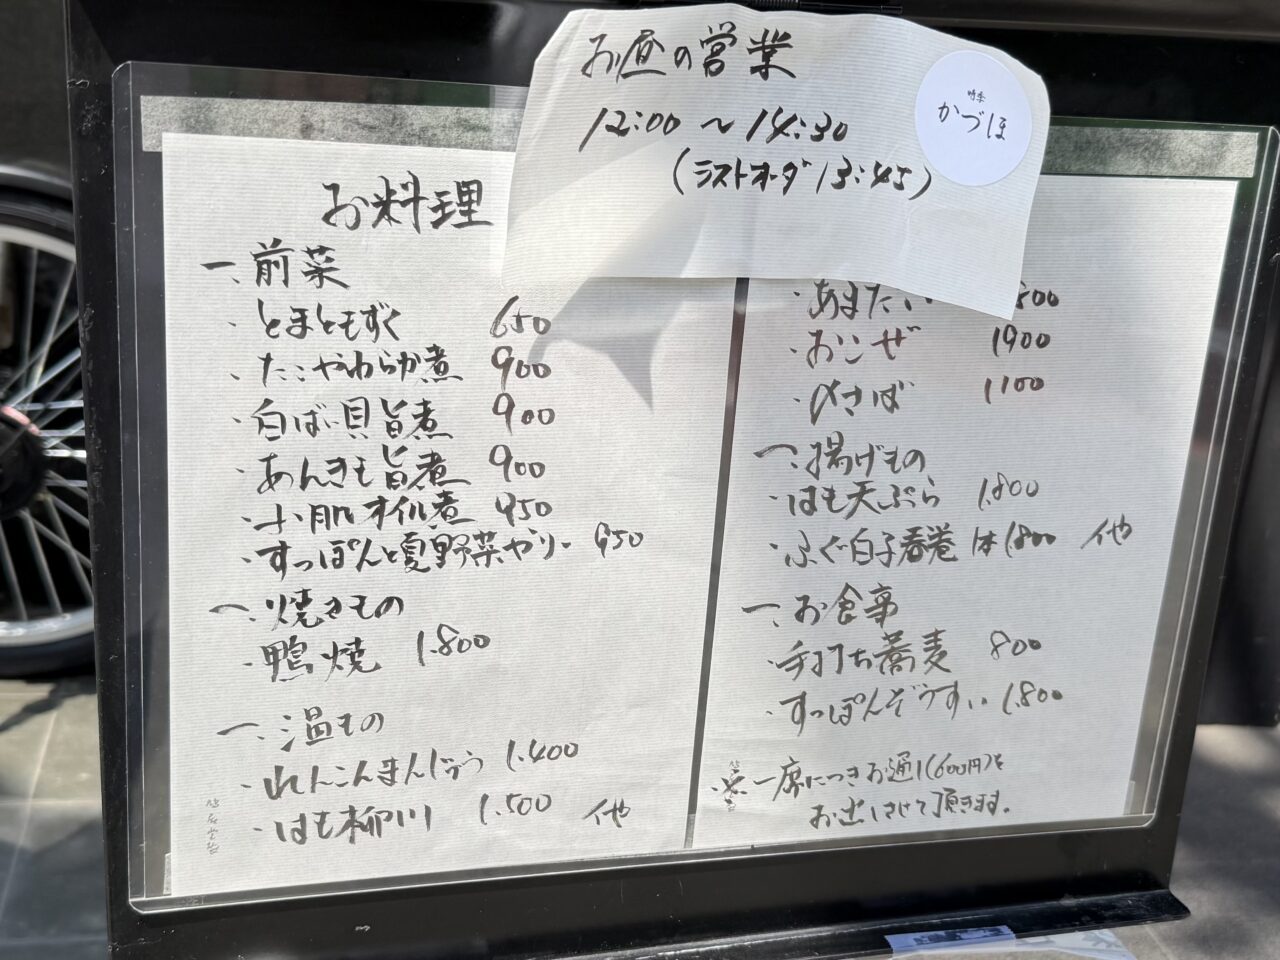 お昼の営業
12:00 ～ 14:30
(ラストオーダ 13:45)
かづほ
お料理
一、前菜
・とまともずく 650
・たこやわらか煮 900
・白ばい貝旨煮 900
・あんきも旨煮 900
・小肌オイル煮 950
・すっぽんと夏野菜ゼリー 950
一、焼きもの
・鴨焼 1.800
一、温もの
・れんこんまんじゅう 1.400
・はも柳川 1.500 他
・あまだい
・おこぜ 1900
・〆さば 1100
一、揚げもの
・はも天ぷら 1.800
・ふぐ白子春巻 1本 1.800 他
一、お食事
・手打ち蕎麦 800
・すっぽんぞうすい 1.800
一席につきお通し(600円)を
お出しさせて頂きます。